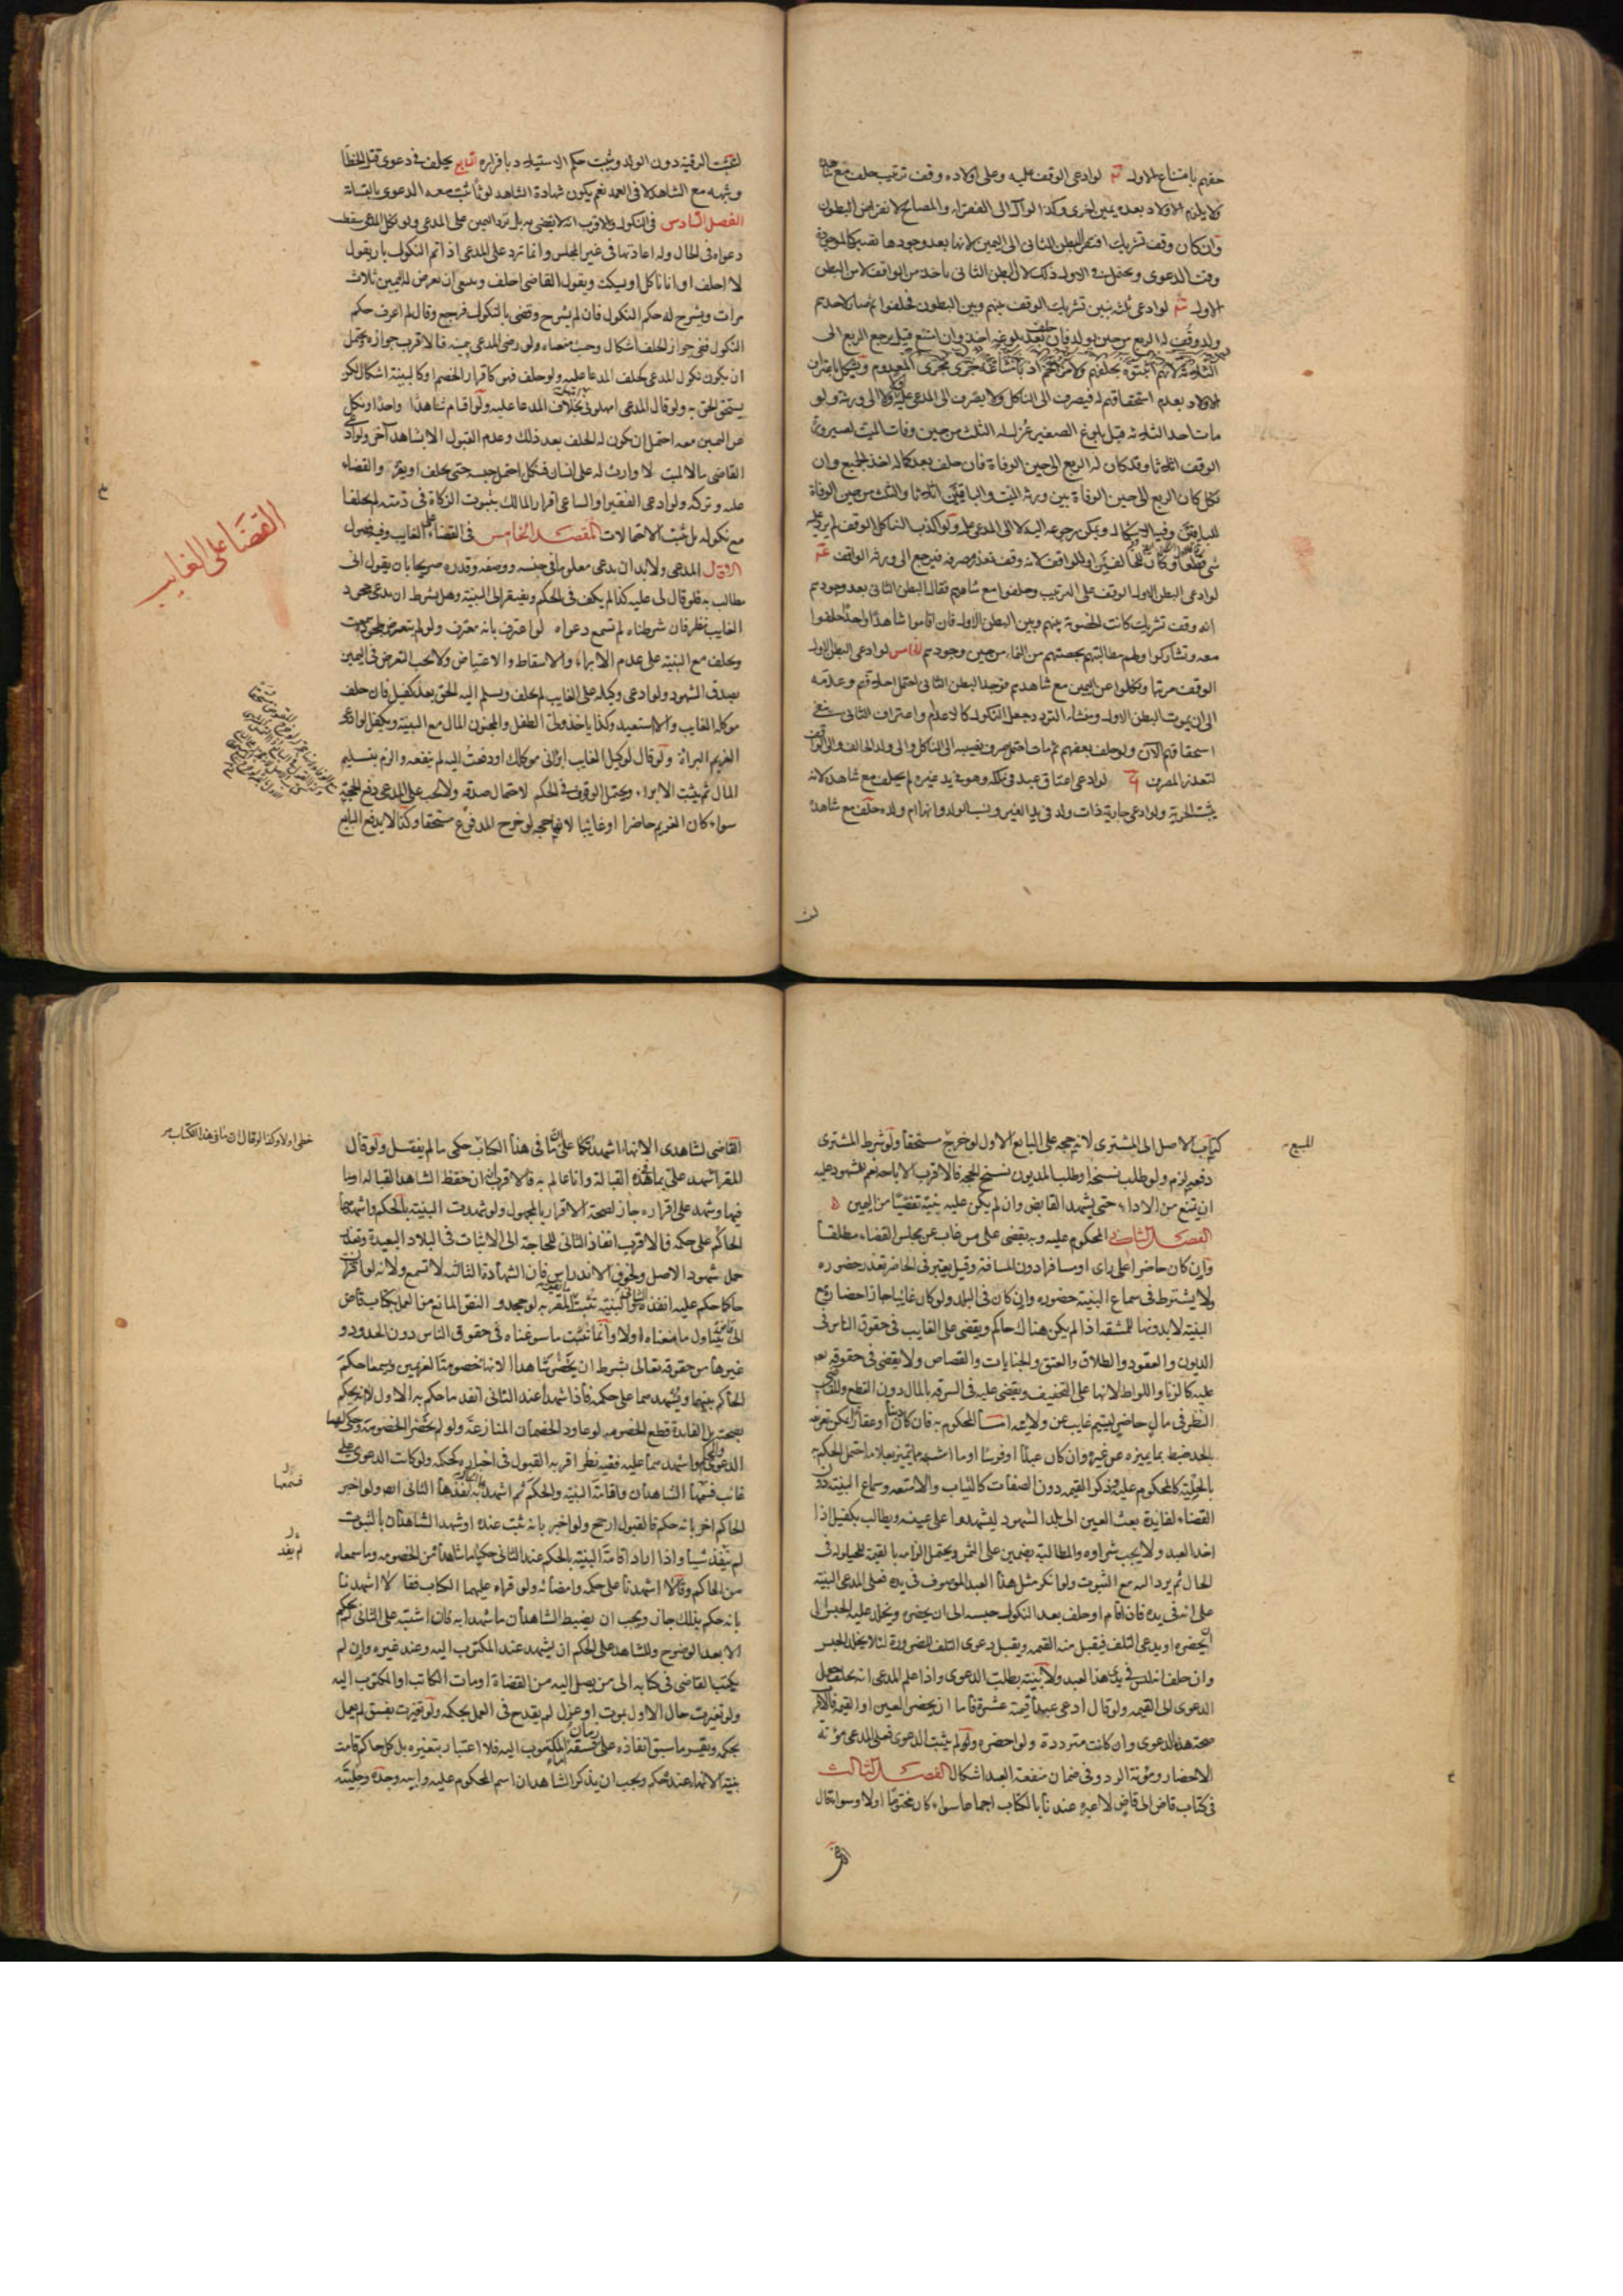 حقهم بامتناع الاول لو ادعى الوقف عليه وعلى اولاده وقف ترتيب حلف مع شاهده
ولا يلزم الاولاد بعده يمين اخرى وكذا لو آل الى الفقراء والمصالح لانقراض البطون
وان كان وقف تشريك افتقر البطن الثاني الى اليمين لانها بعد وجودها تصير كالموجودة
وقت الدعوى ويحتمل في الاول ذلك لان البطن الثاني ياخذ من الواقف لا من البطن
الاول لو ادعى ثلثه بنين تشريك الوقف بينهم وبين البطون فحلفوا ثم صار لاحدهم
ولد وقف له الربع من حين يولد فان حلف بعد بلوغه اخذ وان امتنع قيل يرجع الربع الى
الثلثة لانهم اثبتوه بحلفهم ولا مزاحم اذ بامتناعه جرى مجرى المعدوم ويشكل باعتراف
الاولاد بعدم استحقاقهم له فيصرف الى الناكل ولا يصرف الى المدعى عليه ولا الى ورثة ولو
مات احد الثلثه قبل بلوغ الصغير عزل له الثلث من حين وفات الميت لصيرورة
الوقف اثلاثا وقد كان له الربع الى حين الوفاة فان حلف بعد كماله اخذ الجميع وان
نكل كان الربع الى حين الوفاة بين ورثة الميت والباقيين اثلاثا والثلث من حين الوفاة
للباقيين وفيه اشكال ويمكن رجوعه اليه لا الى المدعى عليه ولو اكذب الناكل الوقف لم يرد عليه
لو ادعى البطن الاول الوقف على الترتيب وحلفوا مع شاهدهم فقال البطن الثاني بعد وجودهم
انه وقف تشريك كانت الخصومة بينهم وبين البطن الاول فان اقاموا شاهدا واحدا حلفوا
معه وتشاركوا ولهم مطالبتهم بحصتهم من النماء من حين وجودهم الخامس لو ادعى البطن الاول
الوقف مرتبا ونكلوا عن اليمين مع شاهدهم فوجد البطن الثاني احتمل احلافهم وعدمه
الى ان يموت البطن الاول ومنشاء التردد جعل النكول كالاعدام واعتراف الثاني بنفي
استحقاقهم الآن ولو حلف بعضهم ثم مات احتمل صرف نصيبه الى الناكل والى ولد الحالف والى الواقف
لتعذر المصرف لو ادعى اعتاق عبد في ملكه وهو في يد غيره لم يحلف مع شاهد لانه
يثبت الحرية ولو ادعى جارية ذات ولد في يد الغير ونسب الولد وانها ام ولده حلف مع شاهده
لتثبت الرقية دون الولد ويثبت حكم الاستيلاد باقراره السابع يحلف في دعوى قتل الخطأ
وشبهه مع الشاهد لا في العمد نعم يكون شهادة الشاهد لوثا تثبت معه الدعوى بالقسامة
الفصل السادس في النكول والاقرب انه لا يقضى به بل يرد اليمين على المدعي ولو نكل المدعي سقطت
دعواه في الحال وله اعادتها في غير المجلس وانما ترد على المدعي اذا تم النكول بان يقول
لا احلف او انا ناكل او يسكت ويقول القاضي احلف وينبغي ان يعرض له اليمين ثلاث
مرات ويشرح له حكم النكول فان لم يشرح وقضى بالنكول فرجع وقال لم اعرف حكم
النكول ففي جواز الحلف اشكال وحيث منعناه ولو رضي المدعي بيمينه فالاقرب جوازه ويحتمل
ان يكون نكول المدعي كحلف المدعا عليه ولو حلف فهي كاقرار الخصم او كالبينة اشكال لكن
يستحق الحق به ولو قال المدعي امهلوني بخلاف المدعا عليه ولو اقام شاهدا واحدا ونكل
عن اليمين معه احتمل ان يكون له الحلف بعد ذلك وعدم القبول الا بشاهد آخر ولو ادعى
القاضي مالا لميت لا وارث له على انسان فنكل احتمل حبسه حتى يحلف او يقر والقضاء
عليه وتركه ولو ادعى الفقير او الساعي اقرار المالك بثبوت الزكاة في ذمته لم يحلفا
مع نكوله بل تثبت الاحتمالات المقصد الخامس في القضاء على الغايب وفيه فصول
الاول المدعي ولا بد ان يدعي معلوما في جنسه ووصفه وقدره صريحا بان يقول اني
مطالب به فلو قال لي عليه كذا لم يكف في الحكم ويفتقر الى البينة وهل يشترط ان يدعي جحود
الغايب نظر فان شرطناه لم تسمع دعواه لو اعترف بانه معترف ولو لم يتعرض لجحوده سمعت
ويحلف مع البينة على عدم الابراء والاسقاط والاعتياض ولا يجب التعرض في اليمين
بصدق الشهود ولو ادعى وكيله على الغايب لم يحلف ويسلم اليه الحق بعد كفيل فان حلف
موكله الغايب والا استعيد وكذا ياخذ ولي الطفل والمجنون المال مع البينة ويكفل لو ادعى
الغريم البراة ولو قال لوكيل الغايب ابراني موكلك او دفعت اليه لم ينفعه والزم بتسليم
المال ثم يثبت الابراء ويحتمل الوقوف في الحكم لاحتمال صدقه ولا يجب على المدعي دفع الحجة
سواء كان الغريم حاضرا او غايبا لانها حجة لو خرج المدفوع مستحقا وكذا لا يدفع البايع
القضا على الغايب
كتاب الاصل الى المشتري لانه حجة على البايع الاول لو خرج مستحقا ولو شرط المشتري
دفعه لزم ولو طلب نسخه او طلب المديون نسخ الحجة فالاقرب الاباحة نعم للمشهود عليه
ان يمتنع من الاداء حتى يشهد القابض وان لم يكن عليه بينة تفصيا من اليمين
الفصل الثاني المحكوم عليه وبه يقضى على من غاب عن مجلس القضاء مطلقا
وان كان حاضرا على راي او مسافرا دون المسافة وقيل يعتبر في الحاضر تعذر حضوره
ولا يشترط في سماع البينة حضوره وان كان في البلد ولو كان غايبا جاز احضاره مع
البينة لا بدونها للمشقه اذا لم يكن هناك حاكم ويقضى على الغايب في حقوق الناس في
الديون والعقود والطلاق والعتق والجنايات والقصاص ولا يقضى في حقوقه تعالى
عليه كالزنا واللواط لانها على التخفيف ويقضى عليه في السرقه بالمال دون القطع وللقاضي
النظر في مال حاضر ليتيم غايب عن ولايته المحكوم به فان كان دينا او عقارا يمكن تعريفه
بالحد ضبط بما يميزه عن غيره وان كان عبدا او فرسا او ما اشبهه مما يتميز بعلامة احتمل الحكم به
بالحلية كالمحكوم عليه وذكر القيمه دون الصفات كالثياب والامتعه وسماع البينة دون
القضاء لفايدة بعث العين الى بلد الشهود ليشهدوا على عينه ويطالب بكفيل اذا
اخذ العبد ولا يجب شراوه والمطالبة بضمين على الثمن ويحتمل الزامه بالقيمة للحيلولة في
الحال ثم يرد اليه مع الثبوت ولو انكر مثل هذا العبد الموصوف في يده فعلى المدعي البينة
على انه في يده فان اقام او حلف بعد النكول حبسه الى ان يحضره ويخلد عليه الحبس الى
ان يحضره او يدعي التلف فيقبل منه القيمه ويقبل دعوى التلف للضرورة لئلا يخلد الحبس
وان حلف انه ليس في يدي هذا العبد ولا بينة بطلت الدعوى واذا علم المدعي انه يحلف حول
الدعوى الى القيمه ولو قال ادعي عبدا قيمته عشرة فاما ان يحضر العين او القيمة فالاقرب
صحة هذه الدعوى وان كانت مترددة ولو احضره ولو لم يثبت الدعوى فعلى المدعي مؤنة
الاحضار ومؤنة الرد وفي ضمان منفعة العبد اشكال الفصل الثالث
في كتاب قاض الى قاض لا عبرة عندنا بالكتاب اجماعا سواء كان مختوما او لا وسواء قال
المبيع
القاضي لشاهدي الانهاء اشهدتكما على ان ما في هذا الكتاب حكمي ما لم يفصل ولو قال
المقر اشهد علي بما في هذه القبالة وانا عالم به فالاقرب انه ان حفظ الشاهد القباله او ما
فيها وشهد على اقراره جاز لصحة الاقرار بالمجهول ولو شهدت البينة بالحكم واشهدهما
الحاكم على حكمه فالاقرب انفاذ الثاني للحاجة الى الاثبات في البلاد البعيدة وتعذر
حمل شهود الاصل ولخوف الاندراس فان الشهادة الثالثة لا تسمع ولانه لو اقر ان
حاكما حكم عليه انفذه الثاني والبينة تثبت المقر به لو جحد و النص المانع من العمل بكتاب قاض
الى قاض يتناول ما منعناه اولا وانما تثبت ما سوغناه في حقوق الناس دون الحدود و
غيرها من حقوقه تعالى بشرط ان يحضر شاهدا الانهاء خصومة الغريمين ويسمعا حكم
الحاكم بينهما ويشهدهما على حكمه فاذا شهدا عند الثاني انفذ ما حكم به الاول لا انه يحكم
بصحته بل الفايدة قطع الخصومه لو عاود الخصمان المنازعة ولو لم يحضرا الخصومة وحكى لهما
الدعوى والحكم واشهدهما عليه ففيه نظر اقربه القبول في اخباره كحكمه ولو كانت الدعوى على
غائب فسمعها الشاهدان واقامة البينة والحكم ثم اشهدهما به انفذها الثاني ولو اخبر
الحاكم آخر بانه حكم فالقبول ارجح ولو اخبر بانه ثبت عنده او شهد الشاهدان بالثبوت
لم يفد شيا واذا اراد اقامة البينة بالحكم عند الثاني حكيا ما شاهداه من الخصومه وما سمعاه
من الحاكم وقالا اشهدنا على حكمه وامضائه ولو قراه عليهما الكتاب فقالا اشهدنا
بانه حكم بذلك جاز ويجب ان يضبط الشاهدان ما شهدا به فان اشتبه على الثاني لم يحكم
الا بعد الوضوح وللشاهد على الحكم ان يشهد عند المكتوب اليه وعند غيره وان لم
يكتب القاضي في كتابه الى من يصل اليه من القضاة او مات الكاتب او المكتوب اليه
ولو تغيرت حال الاول بموت او عزل لم يقدح في العمل بحكمه ولو تغيرت بفسق لم يعمل
بحكمه ويقر ما سبق انفاذه على زمان فسقه اما المكتوب اليه فلا اعتبار بتغيره بل كل حاكم قامت
بينة الانهاء عنده حكم ويجب ان يذكر الشاهدان اسم المحكوم عليه وابيه وجده وحليته
خطي او لا وكذا لو قال ان ما في هذا الكتاب
فسمعها
لم يفد